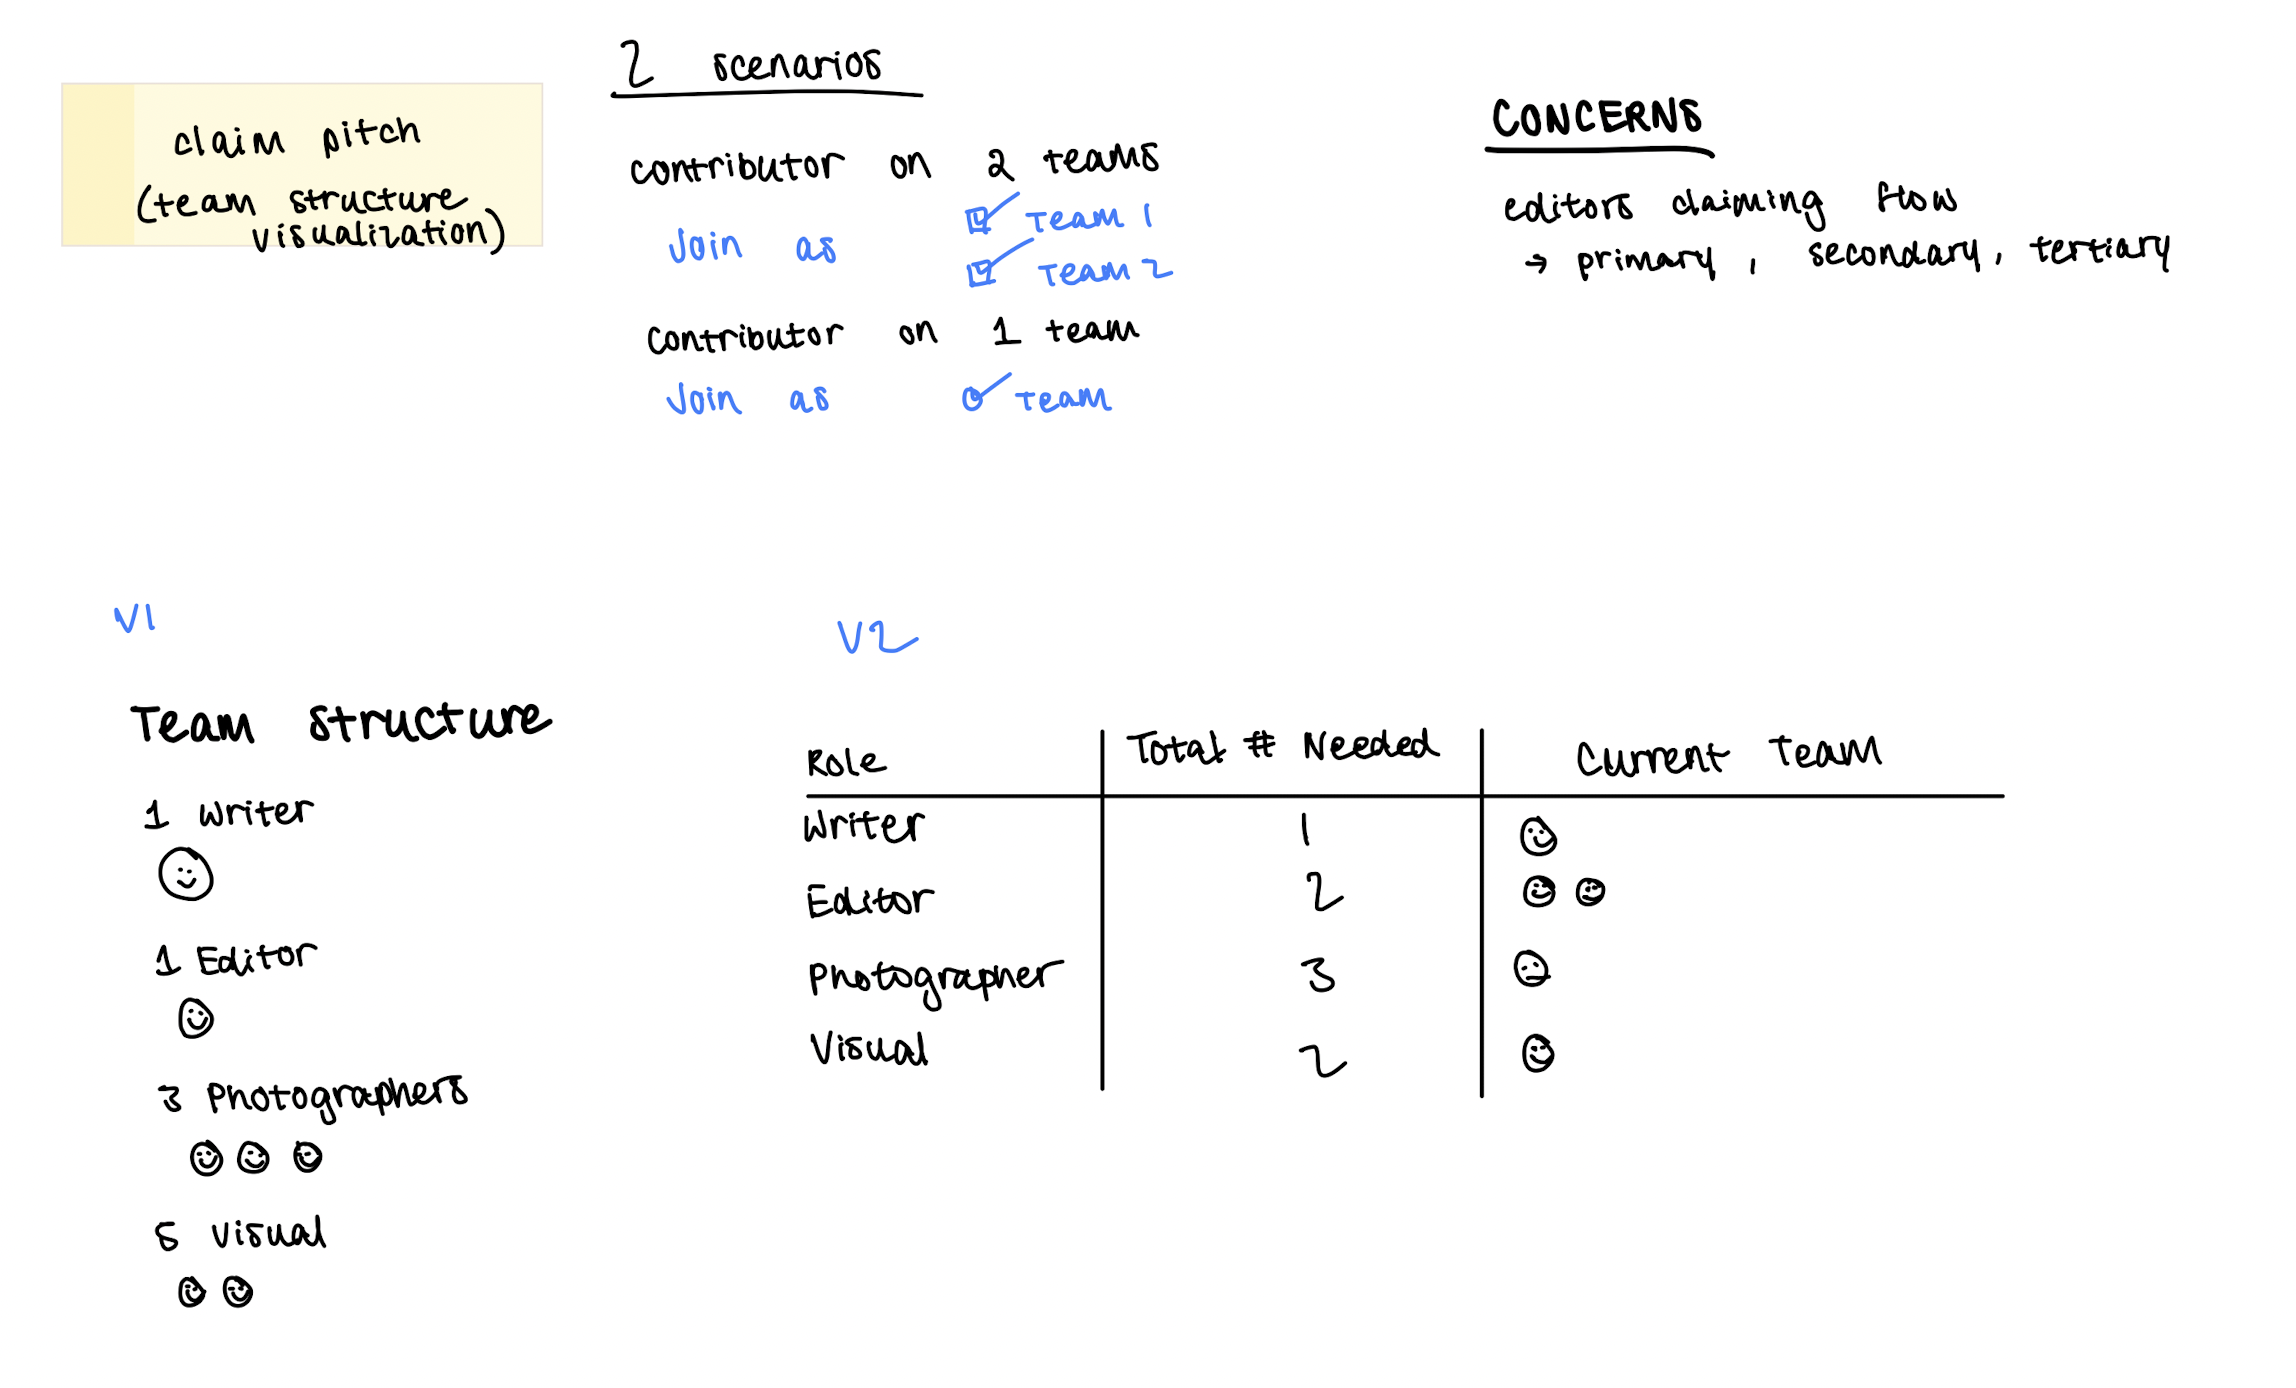 claim pitch
(team structure
visualization)
2 scenarios
contributor on 2 teams
Join as Team 1
Team 2
contributor on 1 team
Join as Team
CONCERNS
editors claiming flow
→ primary, secondary, tertiary
V1
Team structure
1 Writer
1 Editor
3 Photographers
5 Visual
V2
Role Total # Needed Current Team
Writer 1
Editor 2
Photographer 3
Visual 2